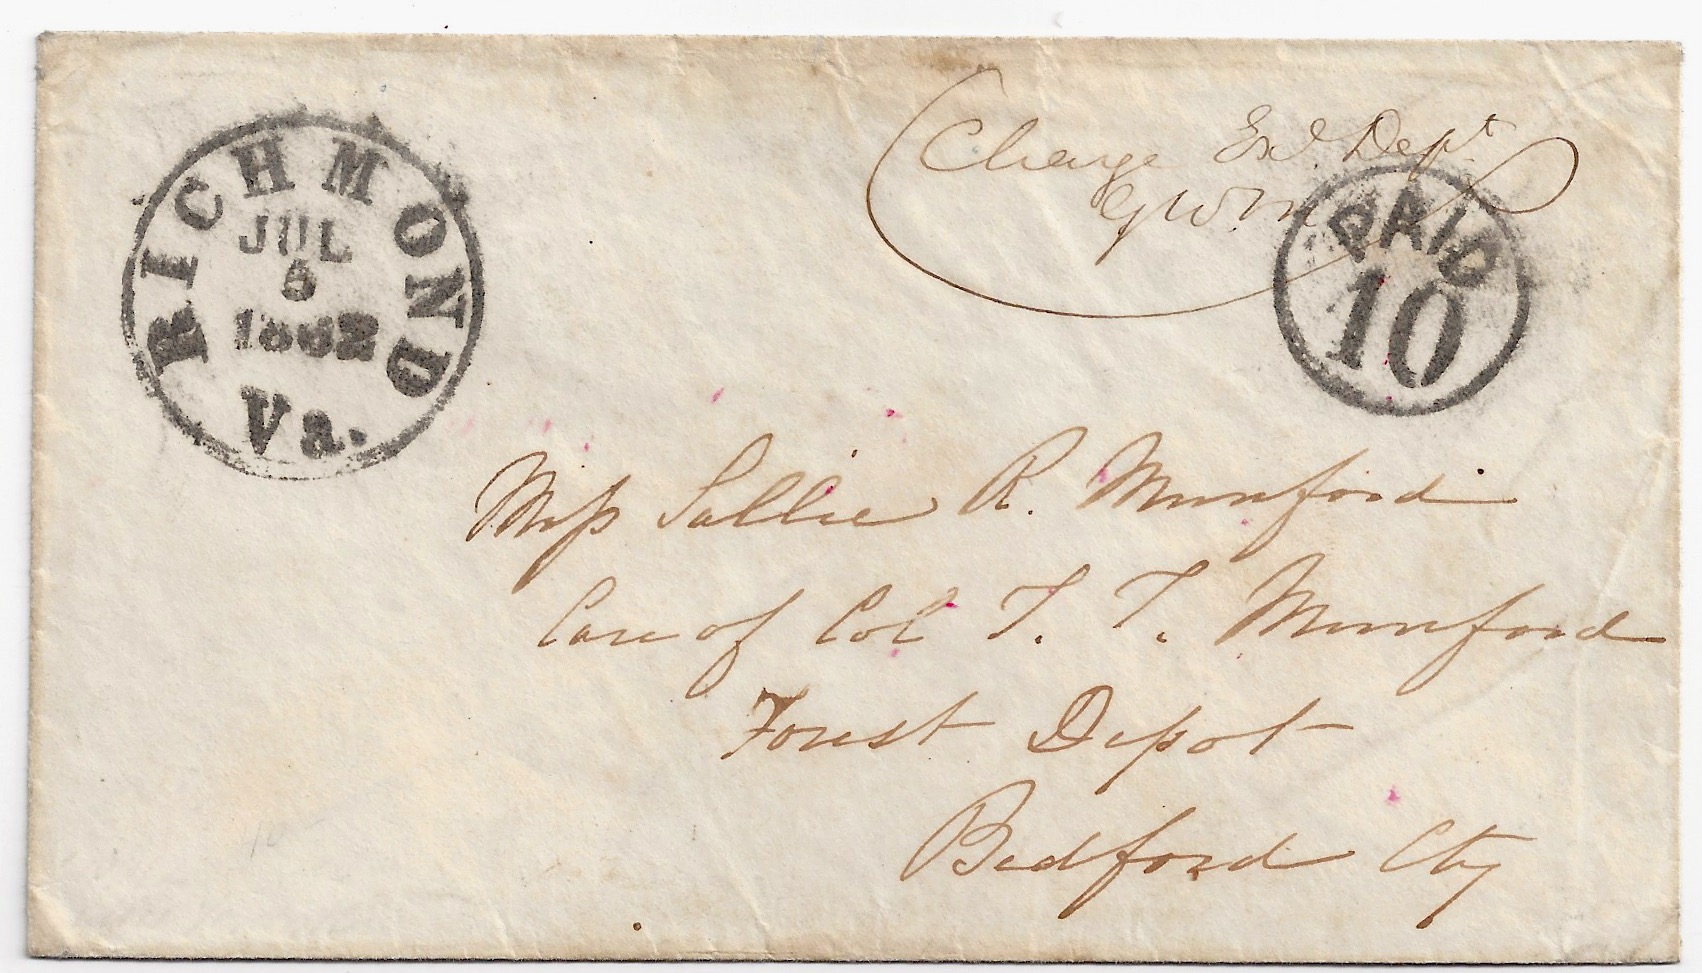 RICHMOND
JUL
5
1862
Va.
Charge Ex. Dept.
GWM
PAID
10
Miss Sallie R. Munford
Care of Col T. T. Munford
Forest Depot
Bedford Cty